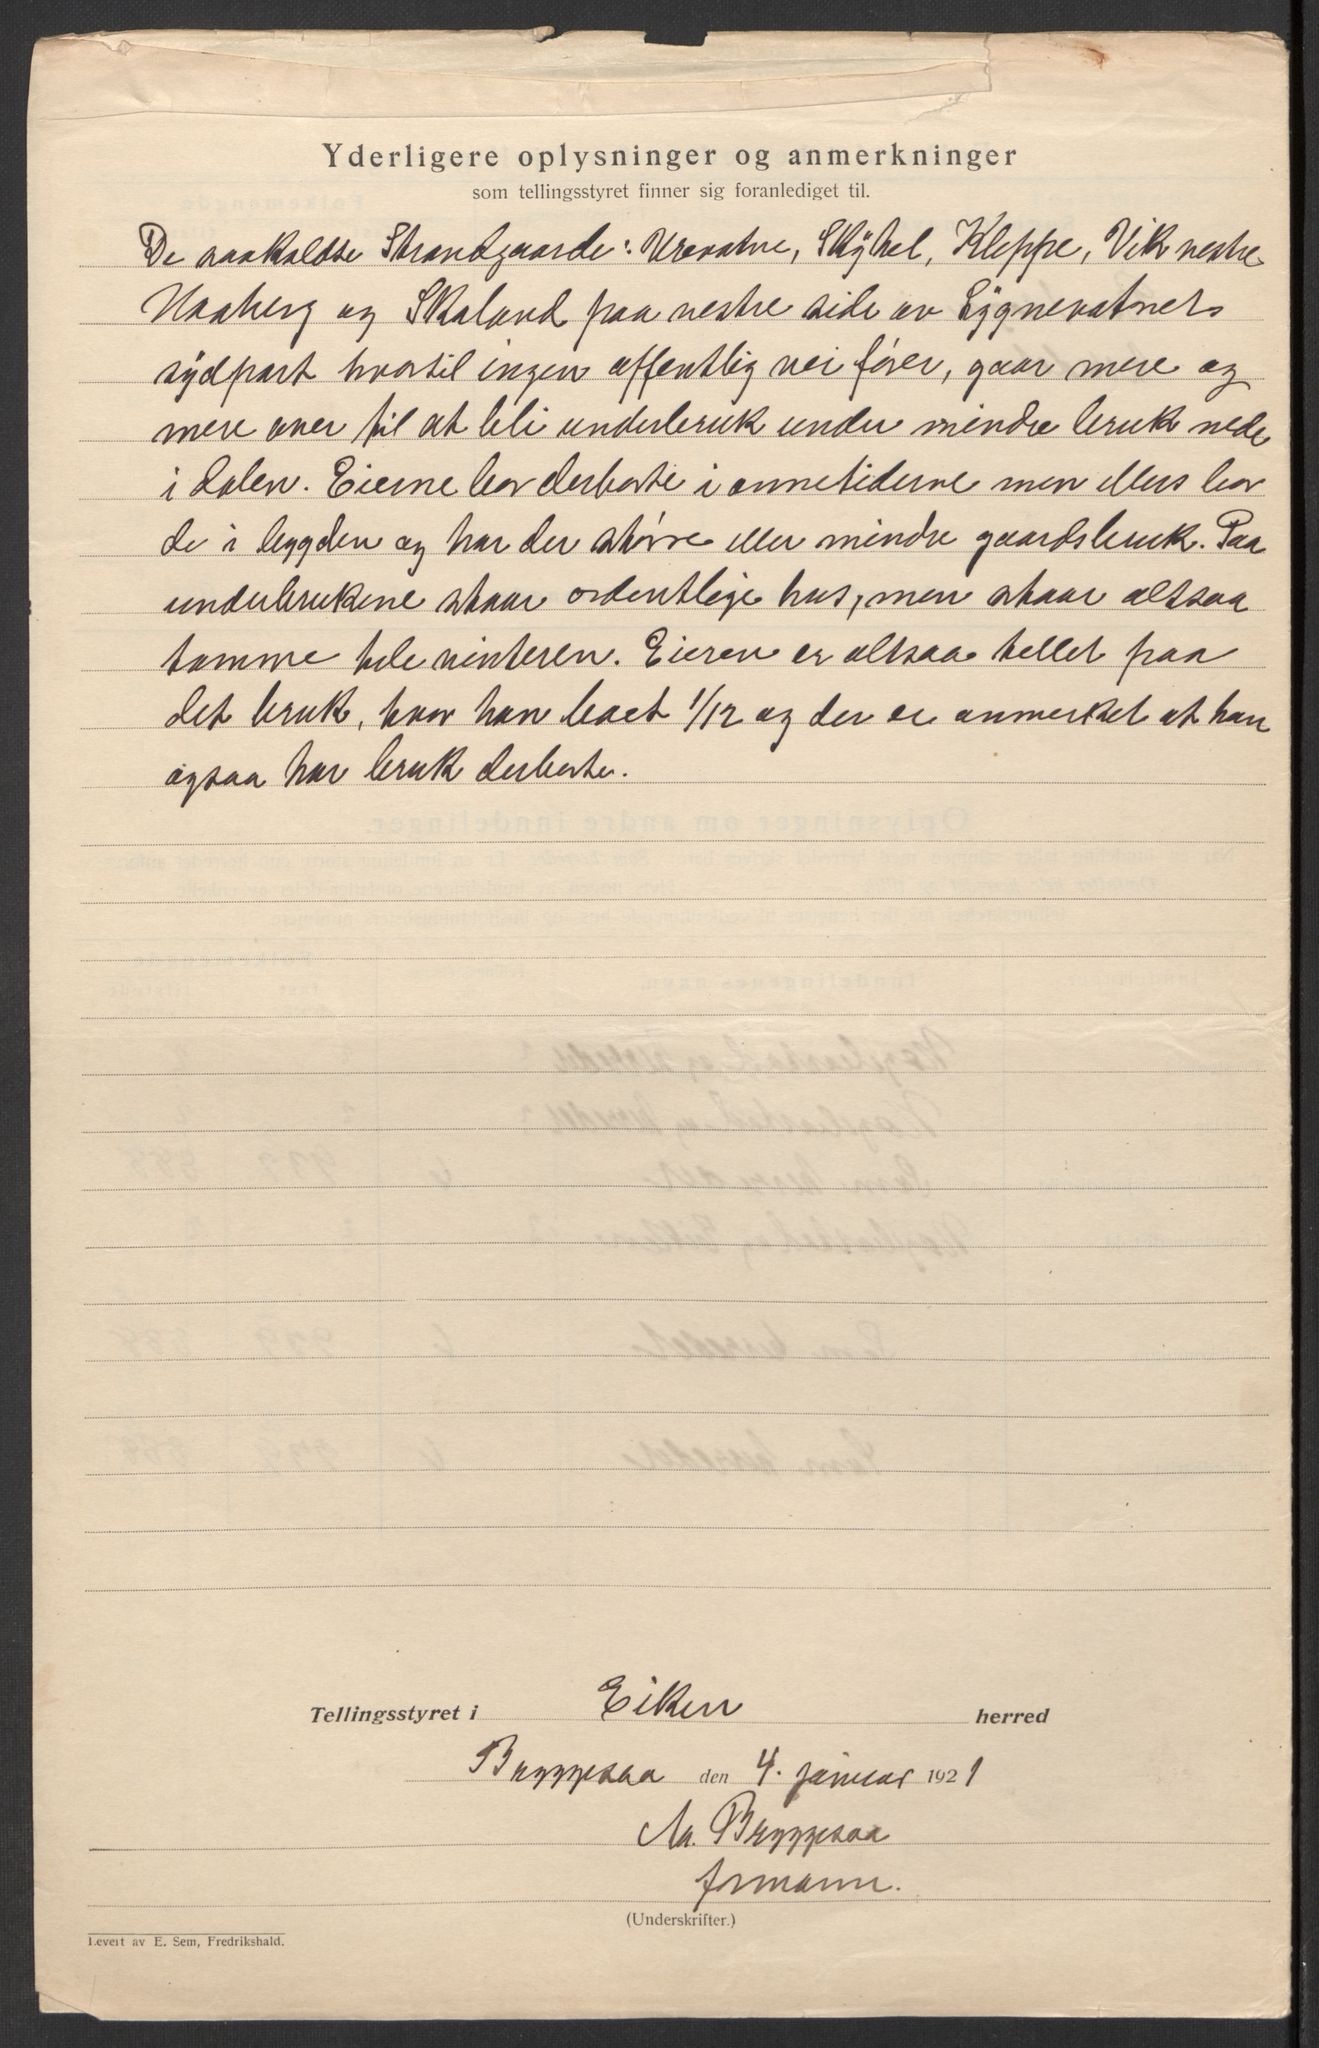 Yderligere oplysninger og anmerkninger
som tellingsstyret finner sig foranlediget til.
De saakaldte Strandgaarde: Urevatne, Skythel, Kleppe, Vik vestre
Haaberg og Skaland paa vestre side av Lygnevatnets
sydpart hvortil ingen offentlig vei fører, gaar mere og
mere over til at bli underbruk under mindre bruk nede
i dalen. Eierne bor derborte i onnetiderne men ellers bor
de i bygden og har der større eller mindre gaardsbruk. Paa
underbrukene staar ordentlige hus, men staar altsaa
tomme hele vinteren. Eieren er altsaa tellet paa
det bruk, hvor han boet 1/12 og der er anmerket at han
ogsaa har bruk derborte.
Tellingsstyret i Eiken herred
Bryggesaa den 4. januar 1921
Aa. Bryggesaa
formann.
(Underskrifter.)
Levert av E. Sem, Fredrikshald.